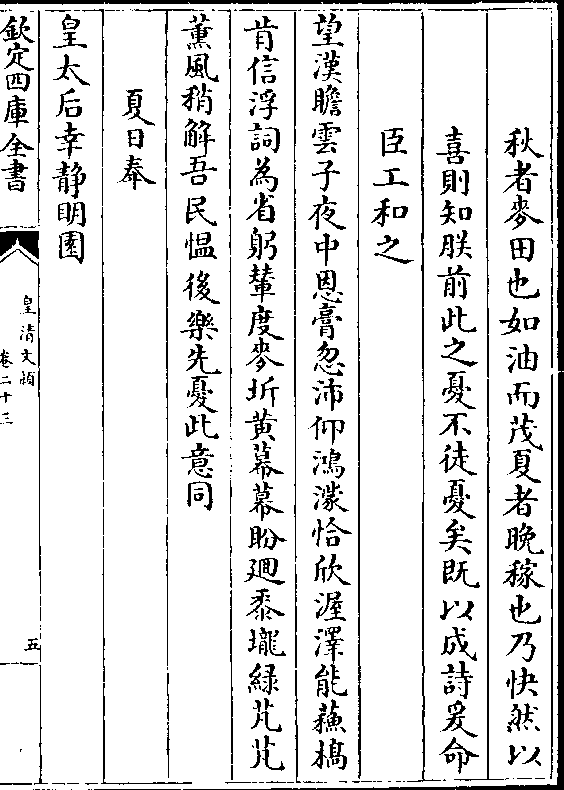 秋者麥田也如油而茂夏者晚稼也乃快然以
喜則知朕前此之憂不徒憂矣既以成詩爰命
臣工和之
望漢瞻雲子夜中恩膏忽沛仰鴻濛恰欣渥澤能蘓槁
肯信浮詞為省躬輦度麥圻黄幕幕盼廽黍壠緑芃芃
薫風稍解吾民愠後樂先憂此意同
夏日奉
皇太后幸静明園
欽定四庫全書
皇清文頴
卷二十三
五